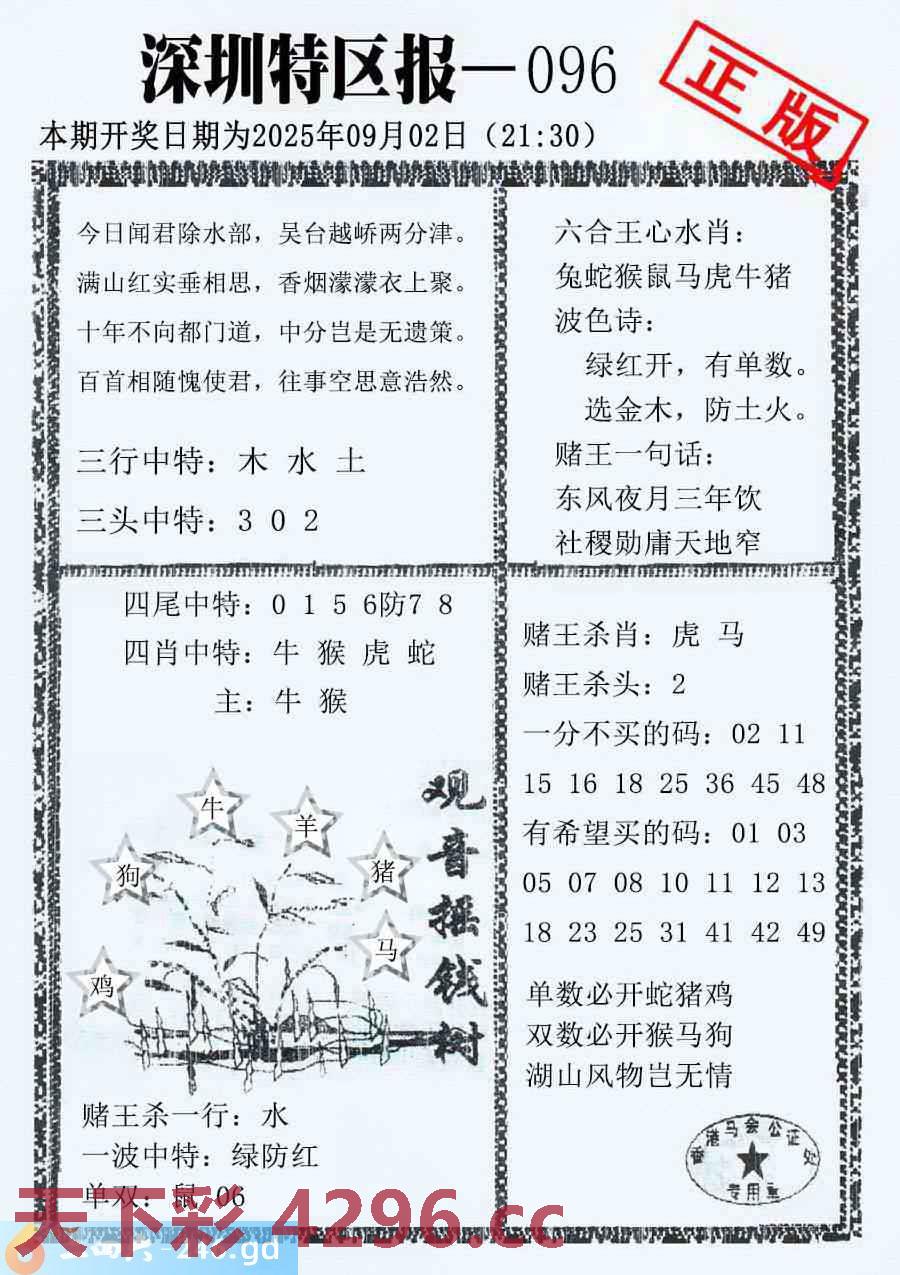 深圳特区报—096
正版
本期开奖日期为2025年09月02日（21:30）
今日闻君除水部，吴台越峤两分津。
满山红实垂相思，香烟濛濛衣上聚。
十年不向都门道，中分岂是无遗策。
百首相随愧使君，往事空思意浩然。
三行中特：木 水 土
三头中特：3 0 2
六合王心水肖：
兔蛇猴鼠马虎牛猪
波色诗：
绿红开，有单数。
选金木，防土火。
赌王一句话：
东风夜月三年饮
社稷勋庸天地窄
四尾中特：0 1 5 6防7 8
四肖中特：牛 猴 虎 蛇
主：牛 猴
牛
羊
狗
猪
马
鸡
观音摇钱树
赌王杀一行：水
一波中特：绿防红
单双：鼠 06
赌王杀肖：虎 马
赌王杀头：2
一分不买的码：02 11
15 16 18 25 36 45 48
有希望买的码：01 03
05 07 08 10 11 12 13
18 23 25 31 41 42 49
单数必开蛇猪鸡
双数必开猴马狗
湖山风物岂无情
香港马会公证处
专用章
天下彩 4296.cc
246.gd